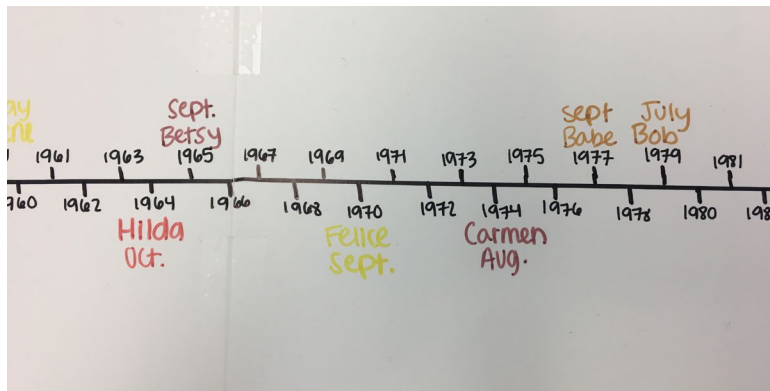 sept.
Betsy
sept
Babe
July
Bob
1961 1963 1965 1967 1969 1971 1973 1975 1977 1979 1981
1962 1964 1966 1968 1970 1972 1974 1976 1978 1980
Hilda
Oct.
Felice
Sept.
Carmen
Aug.